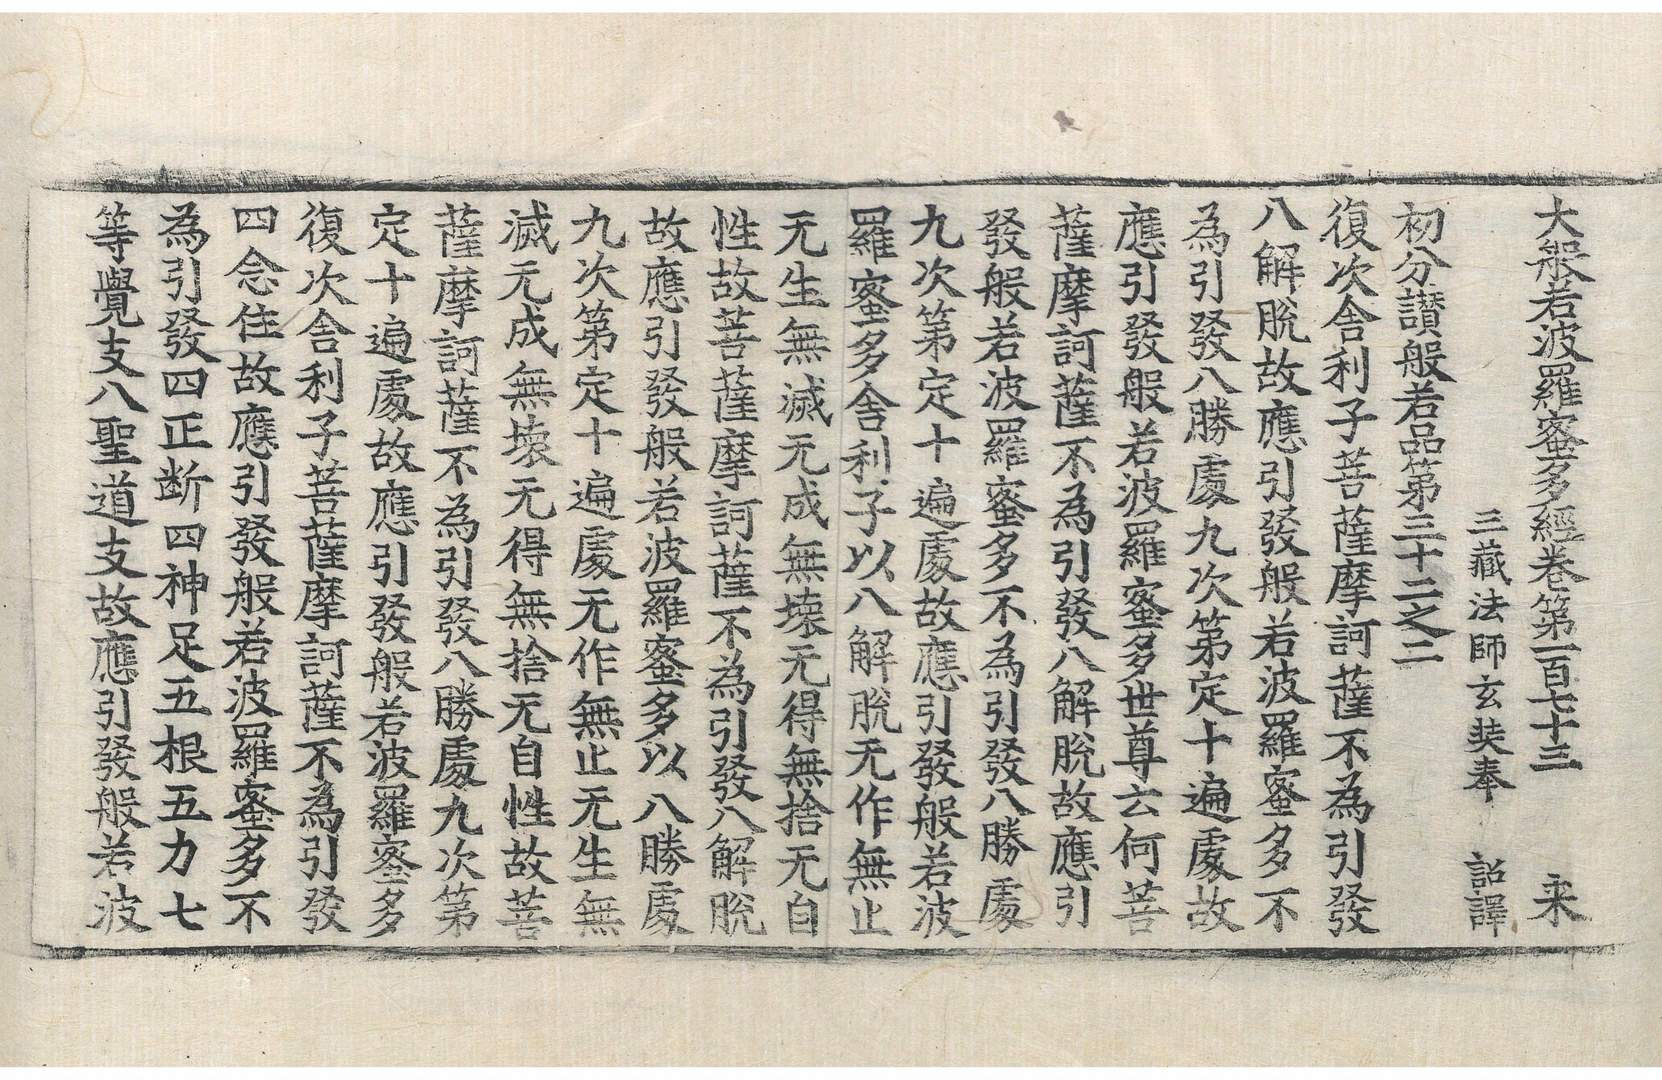 大般若波羅蜜多經卷第一百七十三　来
三藏法師玄奘奉　詔譯
初分讃般若品第三十二之二
復次舎利子菩薩摩訶薩不為引發
八解脫故應引發般若波羅蜜多不
為引發八勝處九次第定十遍處故
應引發般若波羅蜜多世尊云何菩
薩摩訶薩不為引發八解脫故應引
發般若波羅蜜多不為引發八勝處
九次第定十遍處故應引發般若波
羅蜜多舎利子以八解脫无作無止
无生無滅无成無壊无得無捨无自
性故菩薩摩訶薩不為引發八解脫
故應引發般若波羅蜜多以八勝處
九次第定十遍處无作無止无生無
滅无成無壊无得無捨无自性故菩
薩摩訶薩不為引發八勝處九次第
定十遍處故應引發般若波羅蜜多
復次舎利子菩薩摩訶薩不為引發
四念住故應引發般若波羅蜜多不
為引發四正断四神足五根五力七
等覺支八聖道支故應引發般若波